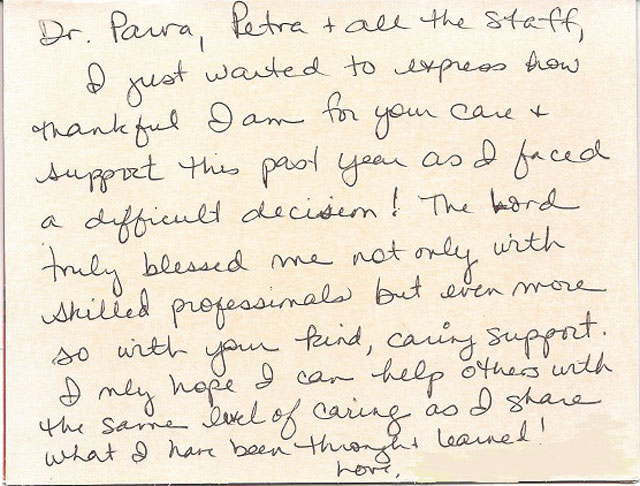 Dr. Parra, Petra + all the staff,
I just wanted to express how
thankful I am for your care +
support this past year as I faced
a difficult decision! The Lord
truly blessed me not only with
skilled professionals but even more
so with your kind, caring support.
I only hope I can help others with
the same level of caring as I share
what I have been through + learned!
Love,